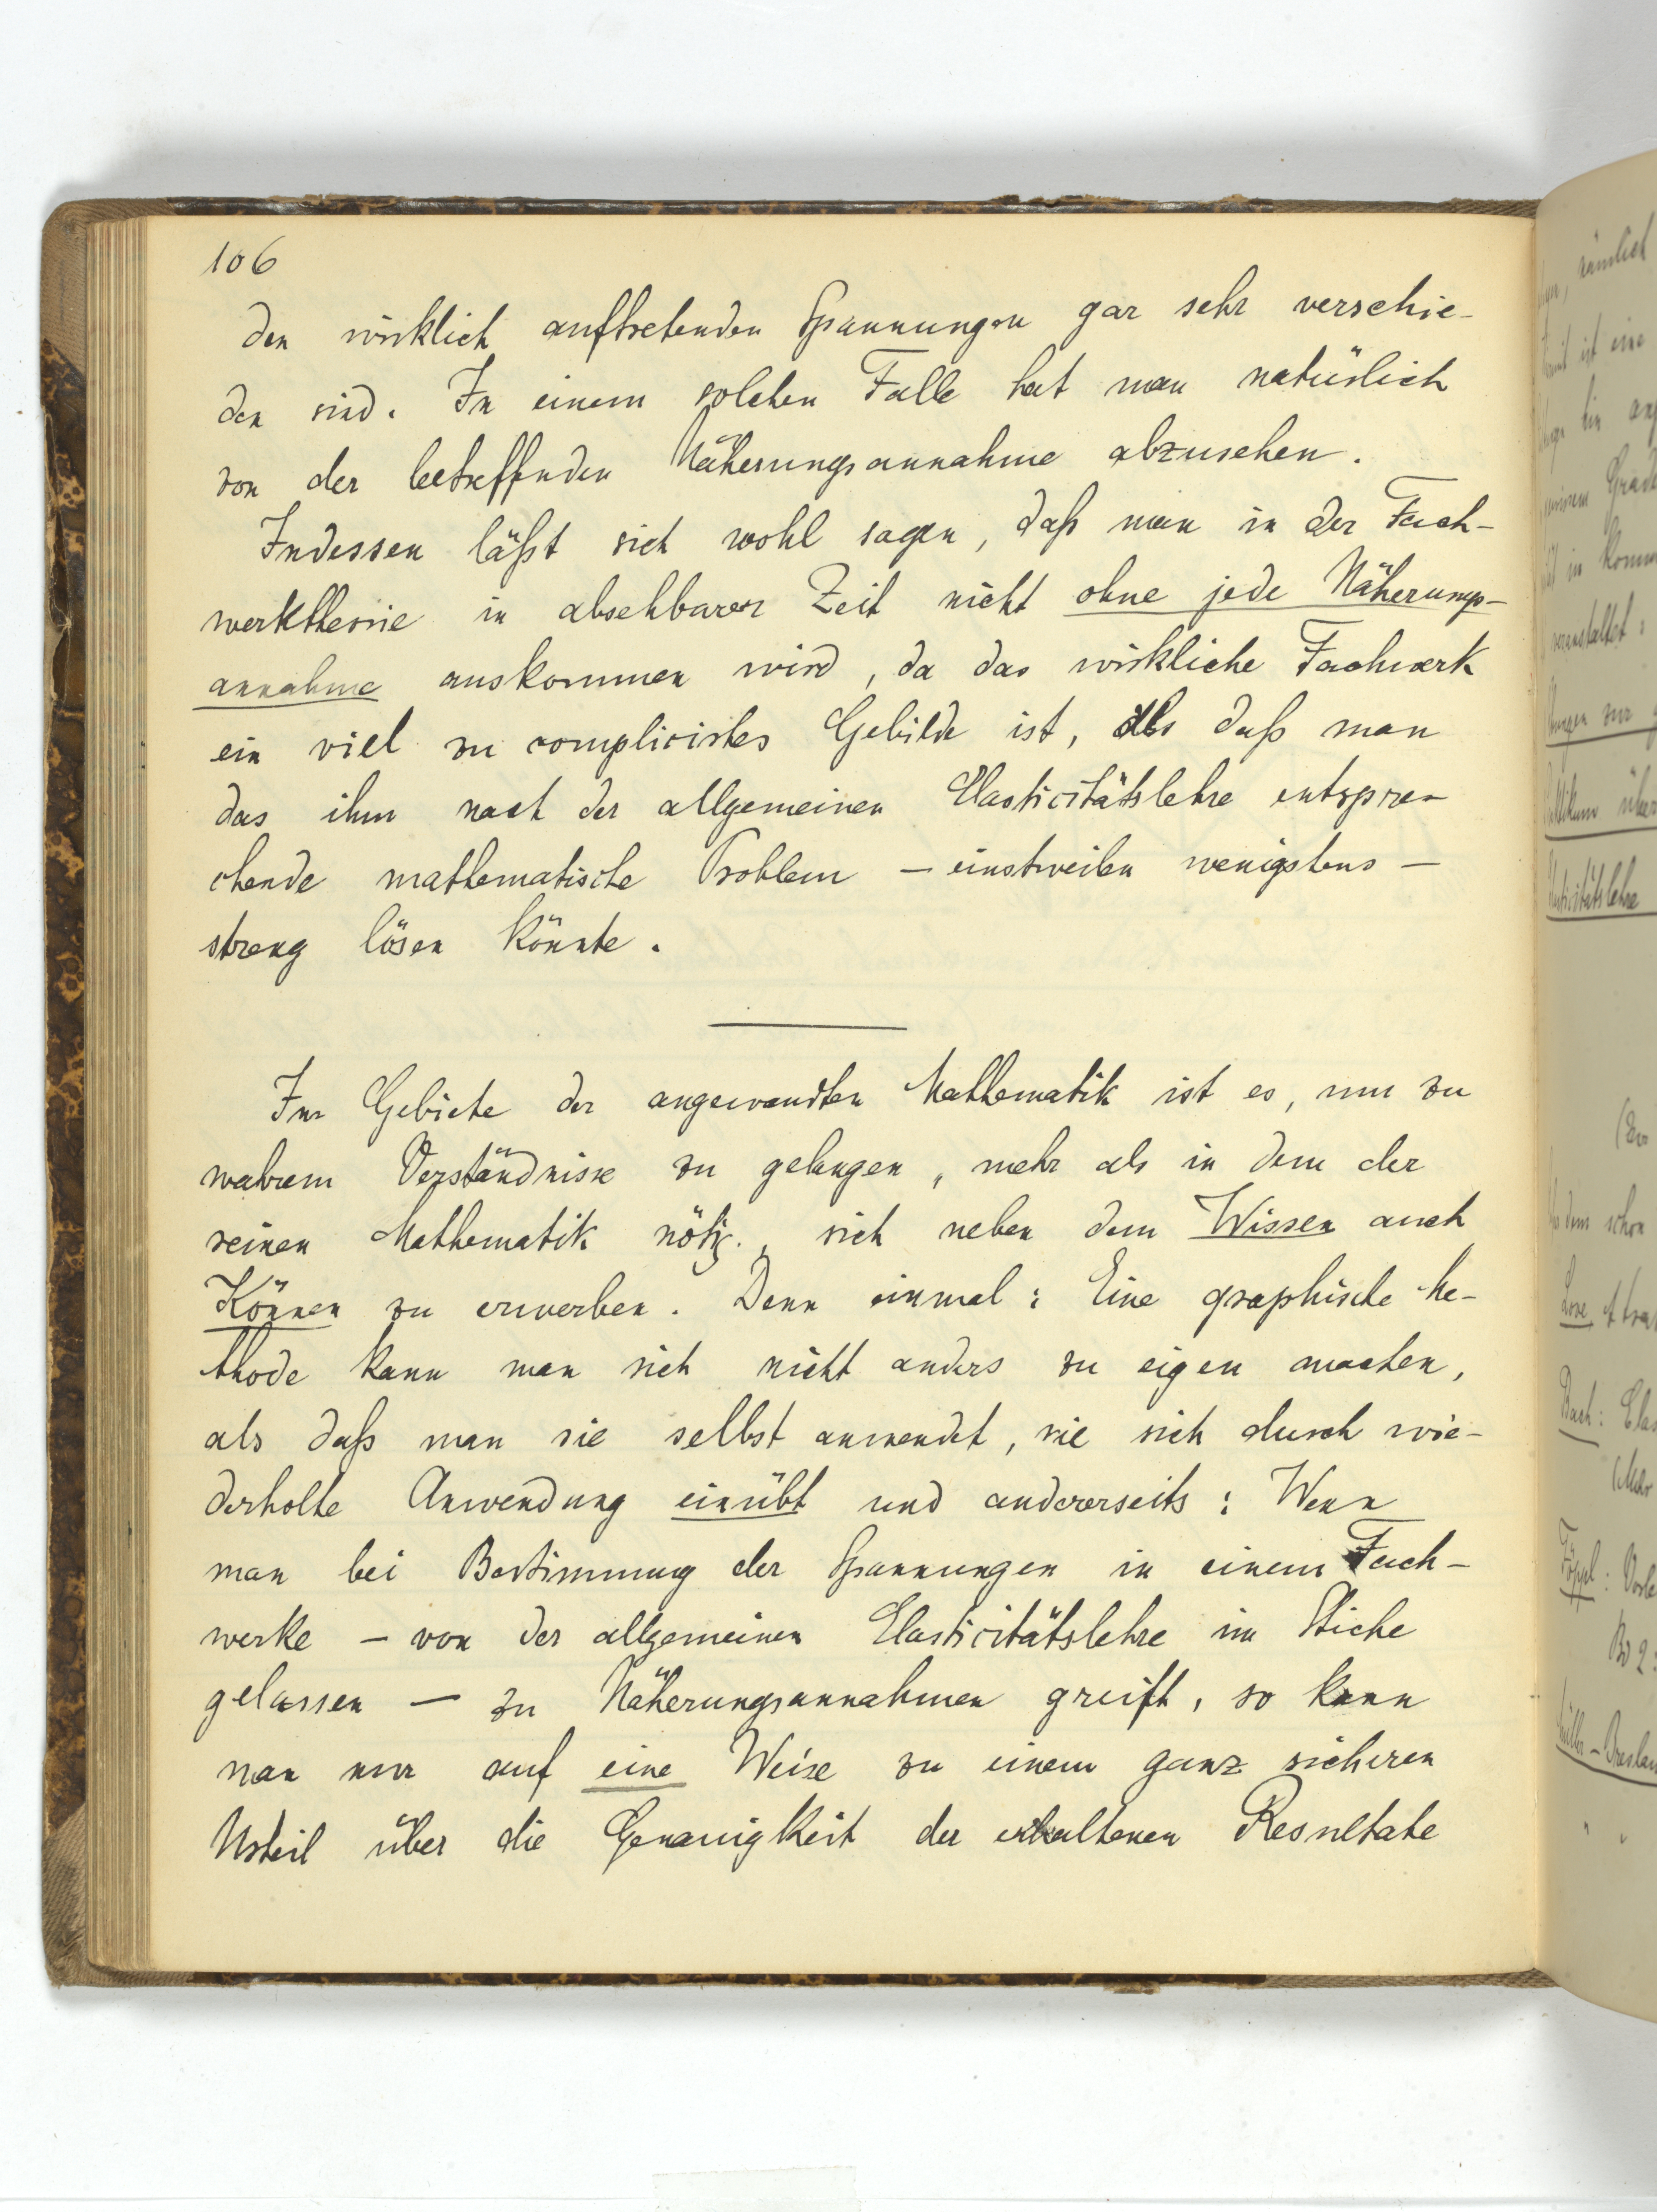 106
den wirklich auftretenden Spannungen gar sehr verschie-
den sind. In einem solchen Falle hat man natürlich
von der betreffenden Näherungsannahme abzusehen.
Indessen läßt sich wohl sagen, daß man in der Fach-
werktheorie in absehbarer Zeit nicht ohne jede Näherungs-
annahme auskommen wird, da das wirkliche Fachwerk
ein viel zu compliciertes Gebilde ist, als daß man
das ihm nach der allgemeinen Elasticitätslehre entspre-
chende mathematische Problem – einstweilen wenigstens –
streng lösen könnte.
Im Gebiete der angewandten Mathematik ist es, um zu
wahrem Verständnisse zu gelangen, mehr als in dem der
reinen Mathematik nötig, sich neben dem Wissen auch
Können zu erwerben. Denn einmal: Eine graphische Me-
thode kann man sich nicht anders zu eigen machen,
als daß man sie selbst anwendet, sie sich durch wie-
derholte Anwendung einübt und andererseits: Wenn
man bei Bestimmung der Spannungen in einem Fach-
werke – von der allgemeinen Elasticitätslehre im Stiche
gelassen – zu Näherungsannahmen greift, so kann
man nur auf eine Weise zu einem ganz sicheren
Urteil über die Genauigkeit der erhaltenen Resultate
nämlich
ist eine
Grade
veranstaltet:
über
Elasticitätslehre
dem schon
Love,
Bach: Elas
Föppl: Vorle
Bd 2:
Müller-Breslau